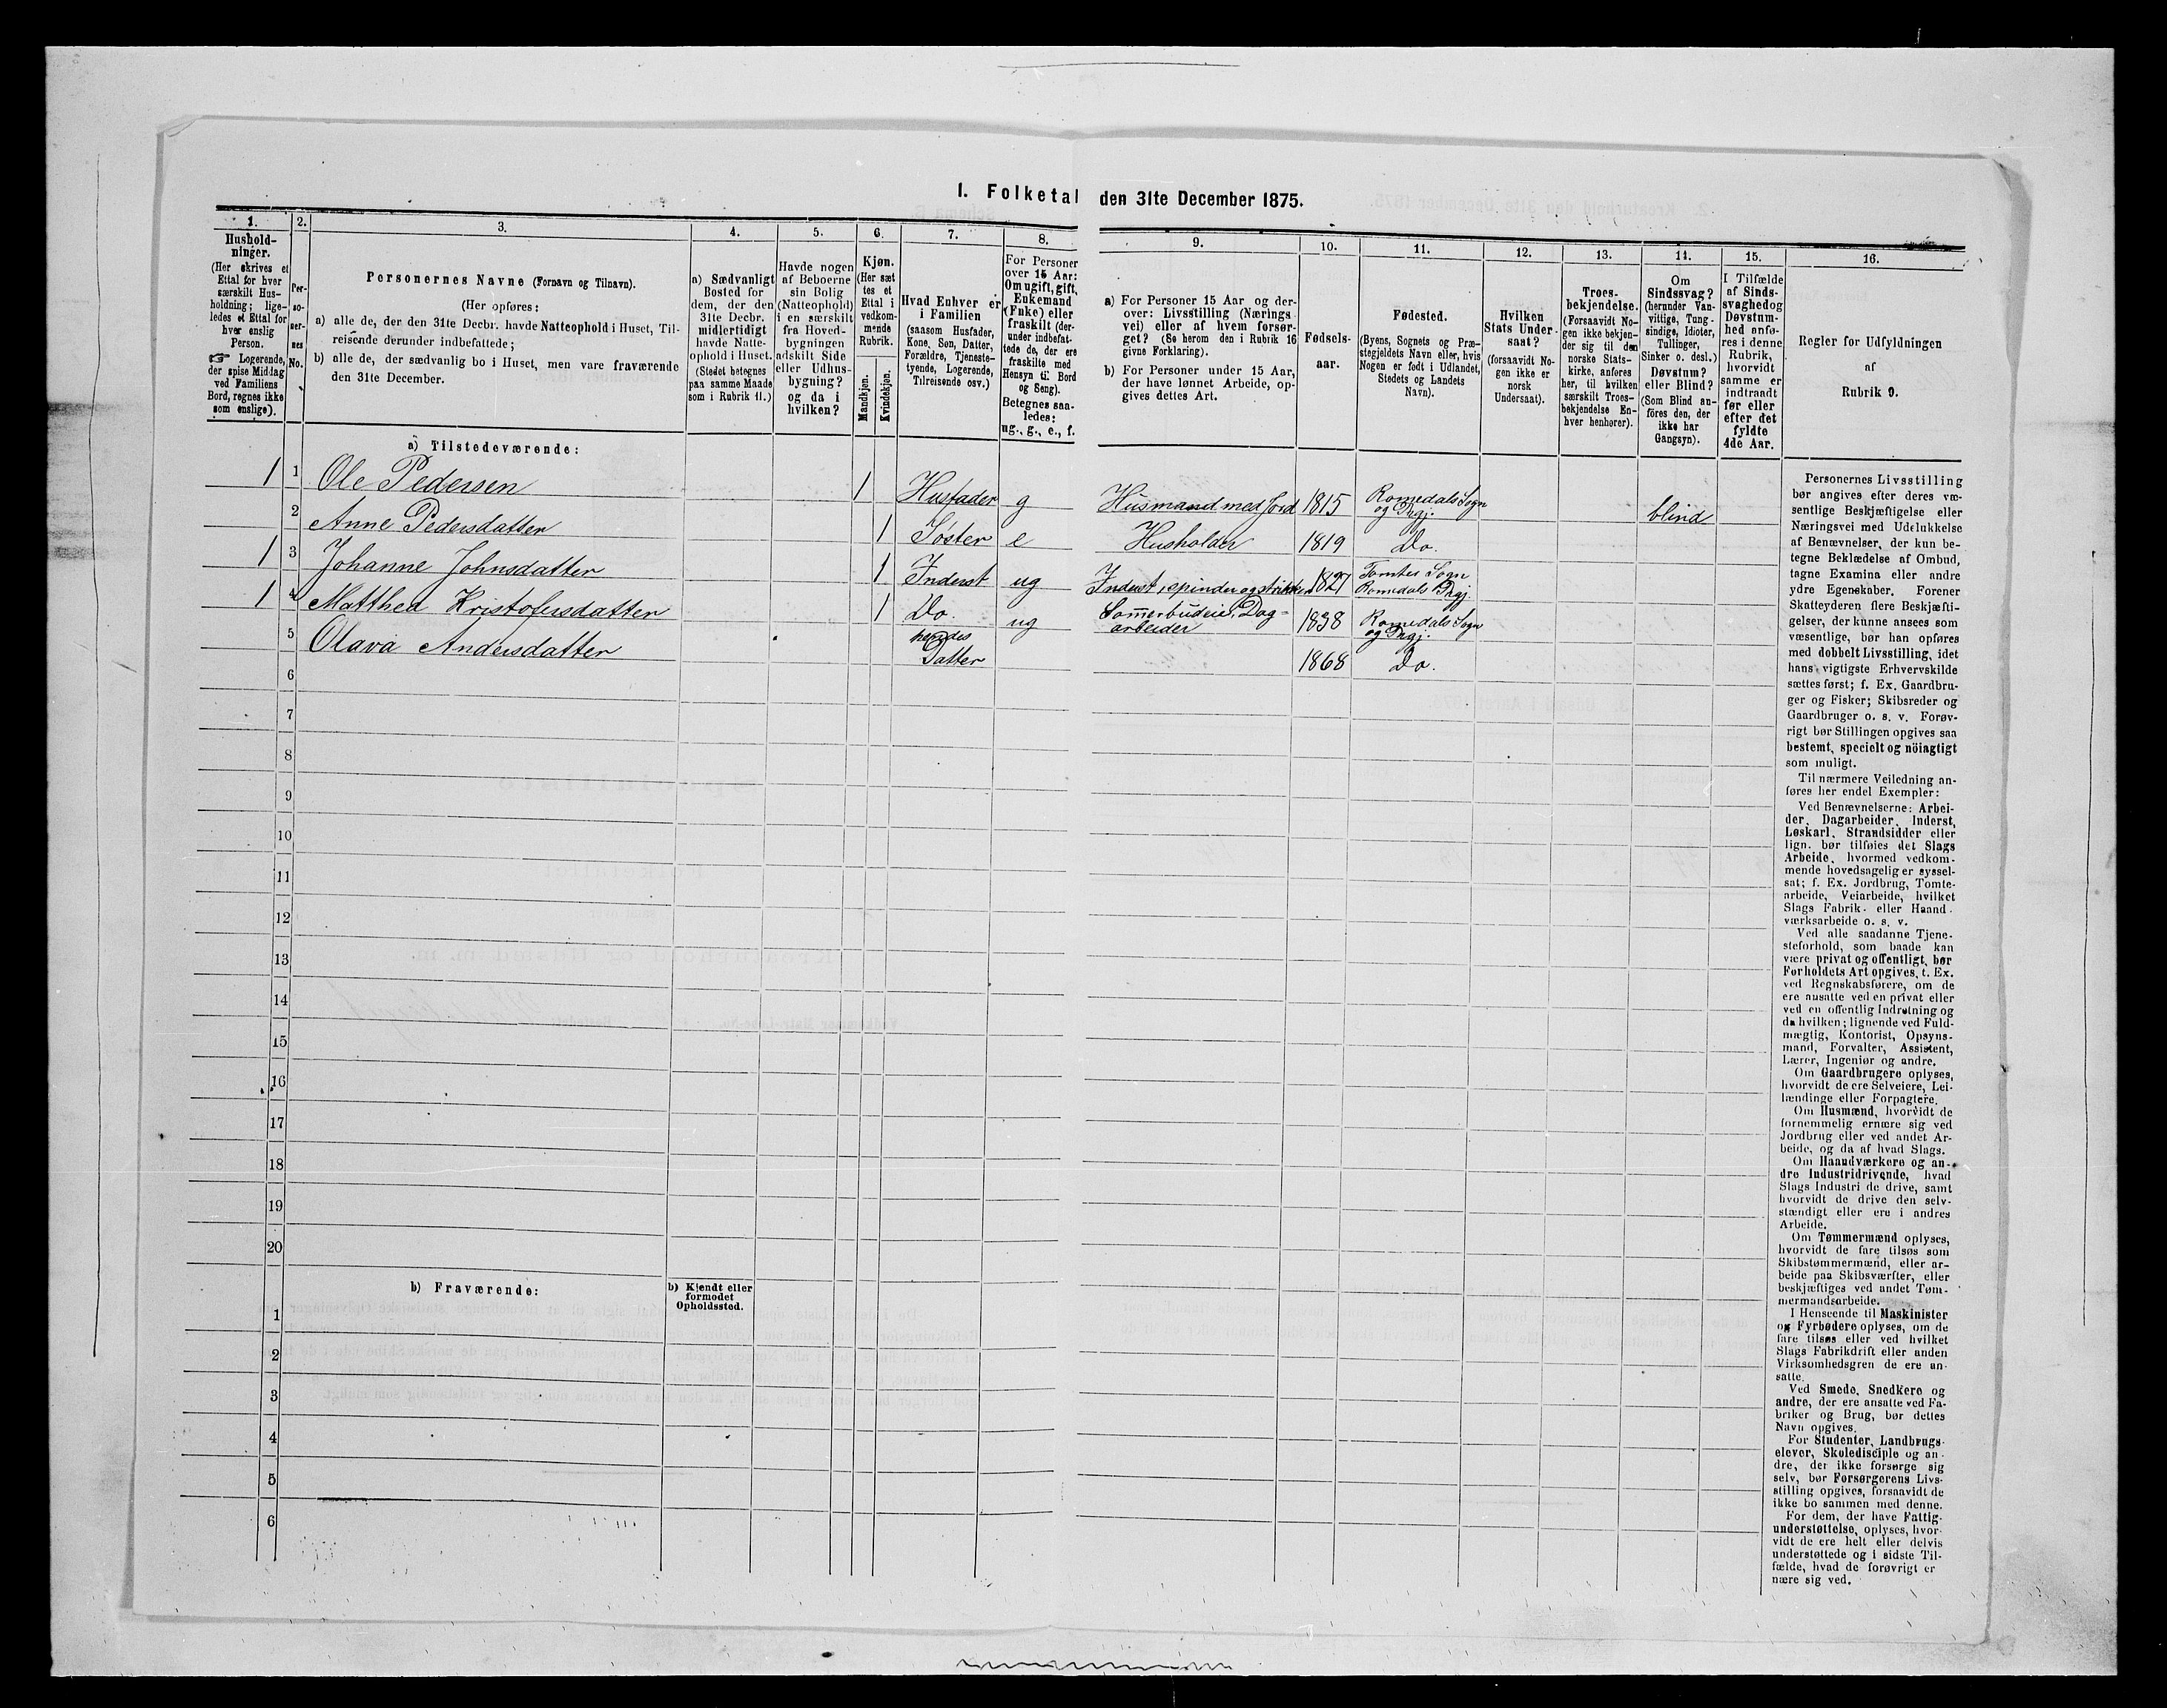 I. Folketal den 31te December 1875.
1.
Hushold-
ninger.
(Her skrives et
Ettal for hver
særskilt Hus-
holdning; lige-
ledes et Ettal for
hver enslig
Person.
☞ Logerende,
der spise Middag
ved Familiens
Bord, regnes ikke
som enslige).
2.
Per-
so-
ner-
nes
No.
3.
Personernes Navne (Fornavn og Tilnavn).
(Her opføres:
a) alle de, der den 31te Decbr. havde Natteophold i Huset, Til-
reisende derunder indbefattede;
b) alle de, der sædvanlig bo i Huset, men vare fraværende
den 31te December.
4.
a) Sædvanligt
Bosted for
dem, der den
31te Decbr.
midlertidigt
havde Natte-
ophold i Huset.
(Stedet betegnes
paa samme Maade
som i Rubrik 11.)
5.
Havde nogen
af Beboerne
sin Bolig
(Natteophold)
i en særskilt
fra Hoved-
bygningen
adskilt Side
eller Udhus-
bygning?
og da i
hvilken?
6.
Kjøn.
(Her sæt
tes et
Ettal i
vedkom-
mende
Rubrik.
Mandkjøn.
Kvindekjøn.
7.
Hvad Enhver er
i Familien
(saasom Husfader,
Kone, Søn, Datter,
Forældre, Tjeneste-
tyende, Logerende,
Tilreisende osv.)
8.
For Personer
over 15 Aar:
Om ugift, gift,
Enkemand
(Enke) eller
fraskilt (der-
under indbefat-
tede de, der ere
fraskilte med
Hensyn til Bord
og Seng).
Betegnes saa-
ledes:
ug., g., e., f.
9.
a) For Personer 15 Aar og der-
over: Livsstilling (Nærings
vei) eller af hvem forsør-
get? (Se herom den i Rubrik 16
givne Forklaring).
b) For Personer under 15 Aar,
der have lønnet Arbeide, op-
gives dettes Art.
10.
Fødsels-
aar.
11.
Fødested.
(Byens, Sognets og Præ-
stegjeldets Navn eller, hvis
Nogen er født i Udlandet,
Stedets og Landets
Navn).
12.
Hvilken
Stats Under-
saat?
(forsaavidt No-
gen ikke er
norsk
Undersaat).
13.
Troes-
bekjendelse.
(Forsaavidt No-
gen ikke bekjen-
der sig til den
norske Stats-
kirke, anføres
her, til hvilken
særskilt Troes-
bekjendelse En-
hver henhører).
14.
Om
Sindssvag?
(herunder Van-
vittige, Tung-
sindige, Idioter,
Tullinger,
Sinker o. desl.)
Døvstum?
eller Blind?
(Som Blind an-
føres den, der
ikke har
Gangsyn).
15.
I Tilfælde
af Sinds-
svaghed og
Døvstum-
hed anfø-
res i denne
Rubrik,
hvorvidt
samme er
indtraadt
før eller
efter det
fyldte
4de Aar.
16.
Regler for Udfyldningen
af
Rubrik 9.
a) Tilstedeværende:
1 1 Ole Pedersen 1 Husfader g Husmand med Jord 1815 Romedals Sogn og Prgj. blind
2 Anne Pedersdatter 1 Søster e Husholder 1819 Do.
1 3 Johanne Johnsdatter 1 Inderst ug Inderst, spinder og strikker 1827 Tomter Sogn Romedals Prgj.
1 4 Matthea Kristofersdatter 1 Do. ug Sommerbudeie, Dag-arbeider 1838 Romedals Sogn og Prgj.
5 Olava Andersdatter hendes Datter 1868 Do.
6
7
8
9
10
11
12
13
14
15
16
17
18
19
20
b) Fraværende:
b) Kjendt eller
formodet
Opholdssted.
1
2
3
4
5
6
Personernes Livsstilling
bør angives efter deres væ-
sentlige Beskjæftigelse eller
Næringsvei med Udelukkelse
af Benævnelser, der kun be-
tegne Beklædelse af Ombud,
tagne Examina eller andre
ydre Egenskaber. Forener
Skatteyderen flere Beskjæfti-
gelser, der kunne ansees som
væsentlige, bør han opføres
med dobbelt Livsstilling, idet
hans vigtigste Erhvervskilde
sættes først; f. Ex. Gaardbru-
ger og Fisker; Skibsreder og
Gaardbruger o. s. v. Forøv-
rigt bør Stillingen opgives saa
bestemt, specielt og nöiagtigt
som muligt.
Til nærmere Veiledning an-
føres her endel Exempler:
Ved Benævnelserne: Arbei-
der, Dagarbeider, Inderst,
Løskarl, Strandsidder eller
lign. bør tilføies det Slags
Arbeide, hvormed vedkom-
mende hovedsagelig er syssel-
sat; f. Ex. Jordbrug, Tomte-
arbeide, Veiarbeide, hvilket
Slags Fabrik- eller Haand-
værksarbeide o. s. v.
Ved alle saadanne Tjene-
steforhold, som baade kan
være privat og offentligt, bør
Forholdets Art opgives, t. Ex.
ved Regnskabsførere, om de
ere ansatte ved en privat eller
ved en offentlig Indretning og
da hvilken; lignende ved Fuld-
mægtig, Kontorist, Opsyns-
mand, Forvalter, Assistent,
Lærer, Ingeniør og andre.
Om Gaardbrugere oplyses,
hvorvidt de ere Selveiere, Lei-
lændinge eller Forpagtere.
Om Husmænd, hvorvidt de
fornemmelig ernære sig ved
Jordbrug eller ved andet Ar-
beide, og da af hvad Slags.
Om Haandværkere og an-
dre Industridrivende, hvad
Slags Industri de drive, samt
hvorvidt de drive den selv-
stændigt eller ere i andres
Arbeide.
Om Tømmermænd oplyses,
hvorvidt de fare tilsøs som
Skibstømmermænd, eller ar-
beide paa Skibsværfter, eller
beskjæftiges ved andet Tøm-
mermandsarbeide.
I Henseende til Maskinister
og Fyrbødere oplyses, om de
fare tilsøs eller ved hvilket
Slags Fabrikdrift eller anden
Virksomhedsgren de ere an-
satte.
Ved Smede, Snedkere og
andre, der ere ansatte ved Fa-
briker og Brug, bør dettes
Navn opgives.
For Studenter, Landbrugs-
elever, Skoledisciple og an-
dre, der ikke forsørge sig
selv, bør Forsørgerens Livs-
stilling opgives, forsaavidt de
ikke bo sammen med denne.
For dem, der have Fattig-
understøttelse, oplyses, hvor-
vidt de ere helt eller delvis
understøttede og i sidste Til-
fælde, hvad de forøvrigt er
nære sig ved.